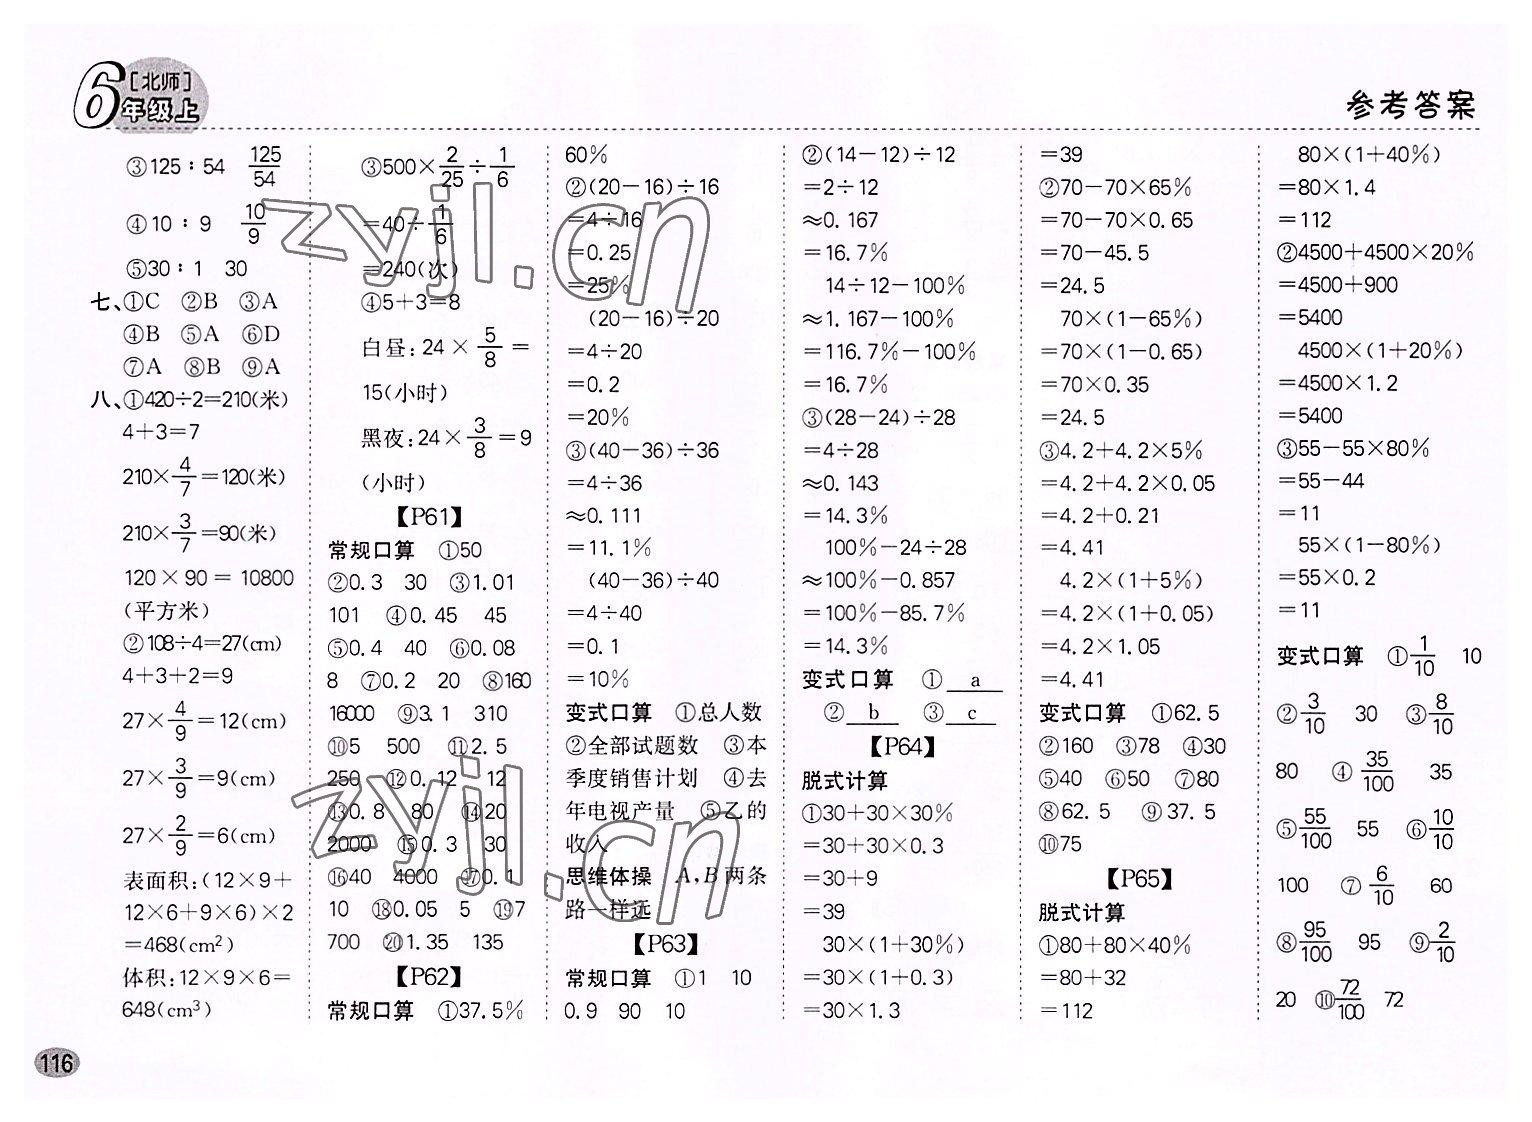 6[北师]
年级上
参考答案
③125∶54 125/54
④10∶9 10/9
⑤30∶1 30
七、①C ②B ③A
④B ⑤A ⑥D
⑦A ⑧B ⑨A
八、①420÷2=210(米)
4+3=7
210×4/7=120(米)
210×3/7=90(米)
120×90=10800
(平方米)
②108÷4=27(cm)
4+3+2=9
27×4/9=12(cm)
27×3/9=9(cm)
27×2/9=6(cm)
表面积:(12×9+
12×6+9×6)×2
=468(cm²)
体积:12×9×6=
648(cm³)
③500×2/25÷1/6
=40÷1/6
=240(次)
④5+3=8
白昼:24×5/8=
15(小时)
黑夜:24×3/8=9
(小时)
【P61】
常规口算 ①50
②0.3 30 ③1.01
101 ④0.45 45
⑤0.4 40 ⑥0.08
8 ⑦0.2 20 ⑧160
16000 ⑨3.1 310
⑩5 500 ⑪2.5
250 ⑫0.12 12
⑬0.8 80 ⑭20
2000 ⑮0.3 30
⑯40 4000 ⑰0.1
10 ⑱0.05 5 ⑲7
700 ⑳1.35 135
【P62】
常规口算 ①37.5%
60%
②(20-16)÷16
=4÷16
=0.25
=25%
(20-16)÷20
=4÷20
=0.2
=20%
③(40-36)÷36
=4÷36
≈0.111
=11.1%
(40-36)÷40
=4÷40
=0.1
=10%
变式口算 ①总人数
②全部试题数 ③本
季度销售计划 ④去
年电视产量 ⑤乙的
收入
思维体操 A,B两条
路一样远
【P63】
常规口算 ①1 10
0.9 90 10
②(14-12)÷12
=2÷12
≈0.167
=16.7%
14÷12-100%
≈1.167-100%
=116.7%-100%
=16.7%
③(28-24)÷28
=4÷28
≈0.143
=14.3%
100%-24÷28
≈100%-0.857
=100%-85.7%
=14.3%
变式口算 ① a
② b ③ c
【P64】
脱式计算
①30+30×30%
=30+30×0.3
=30+9
=39
30×(1+30%)
=30×(1+0.3)
=30×1.3
=39
②70-70×65%
=70-70×0.65
=70-45.5
=24.5
70×(1-65%)
=70×(1-0.65)
=70×0.35
=24.5
③4.2+4.2×5%
=4.2+4.2×0.05
=4.2+0.21
=4.41
4.2×(1+5%)
=4.2×(1+0.05)
=4.2×1.05
=4.41
变式口算 ①62.5
②160 ③78 ④30
⑤40 ⑥50 ⑦80
⑧62.5 ⑨37.5
⑩75
【P65】
脱式计算
①80+80×40%
=80+32
=112
80×(1+40%)
=80×1.4
=112
②4500+4500×20%
=4500+900
=5400
4500×(1+20%)
=4500×1.2
=5400
③55-55×80%
=55-44
=11
55×(1-80%)
=55×0.2
=11
变式口算 ①1/10 10
②3/10 30 ③8/10
80 ④35/100 35
⑤55/100 55 ⑥10/10
100 ⑦6/10 60
⑧95/100 95 ⑨2/10
20 ⑩72/100 72
116
zyjl.cn
zyjl.cn